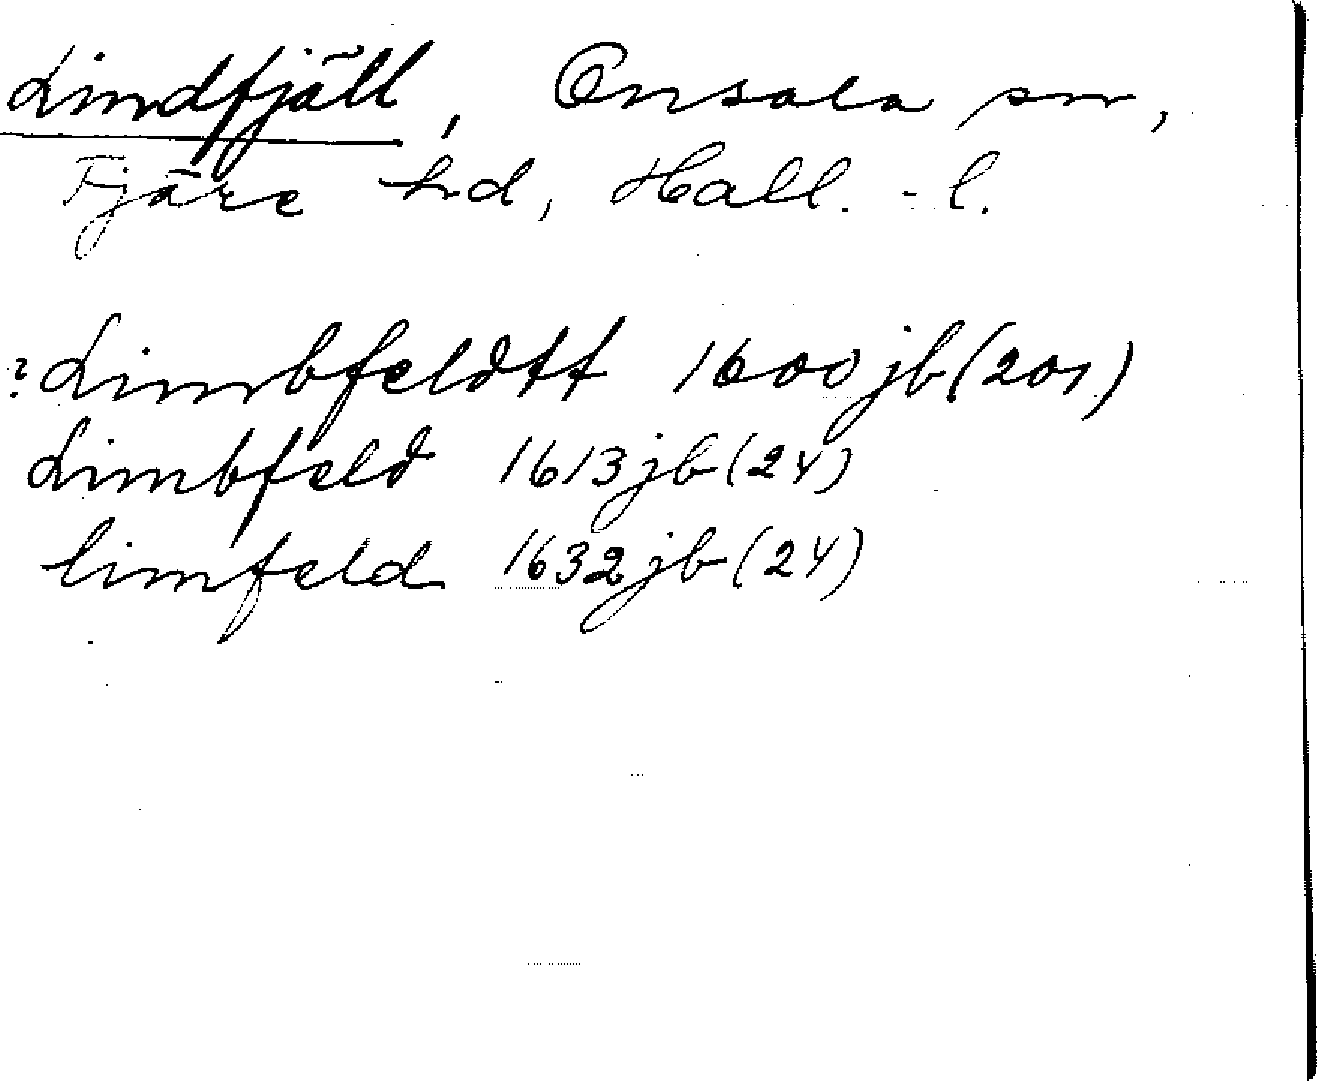 Lindfjäll, Onsala sn,
Fjäre hd, Hall. - l.
? Limbfeldtt 1600 jb (201)
Limbfeld 1613 jb (24)
limfeld 1632 jb (24)